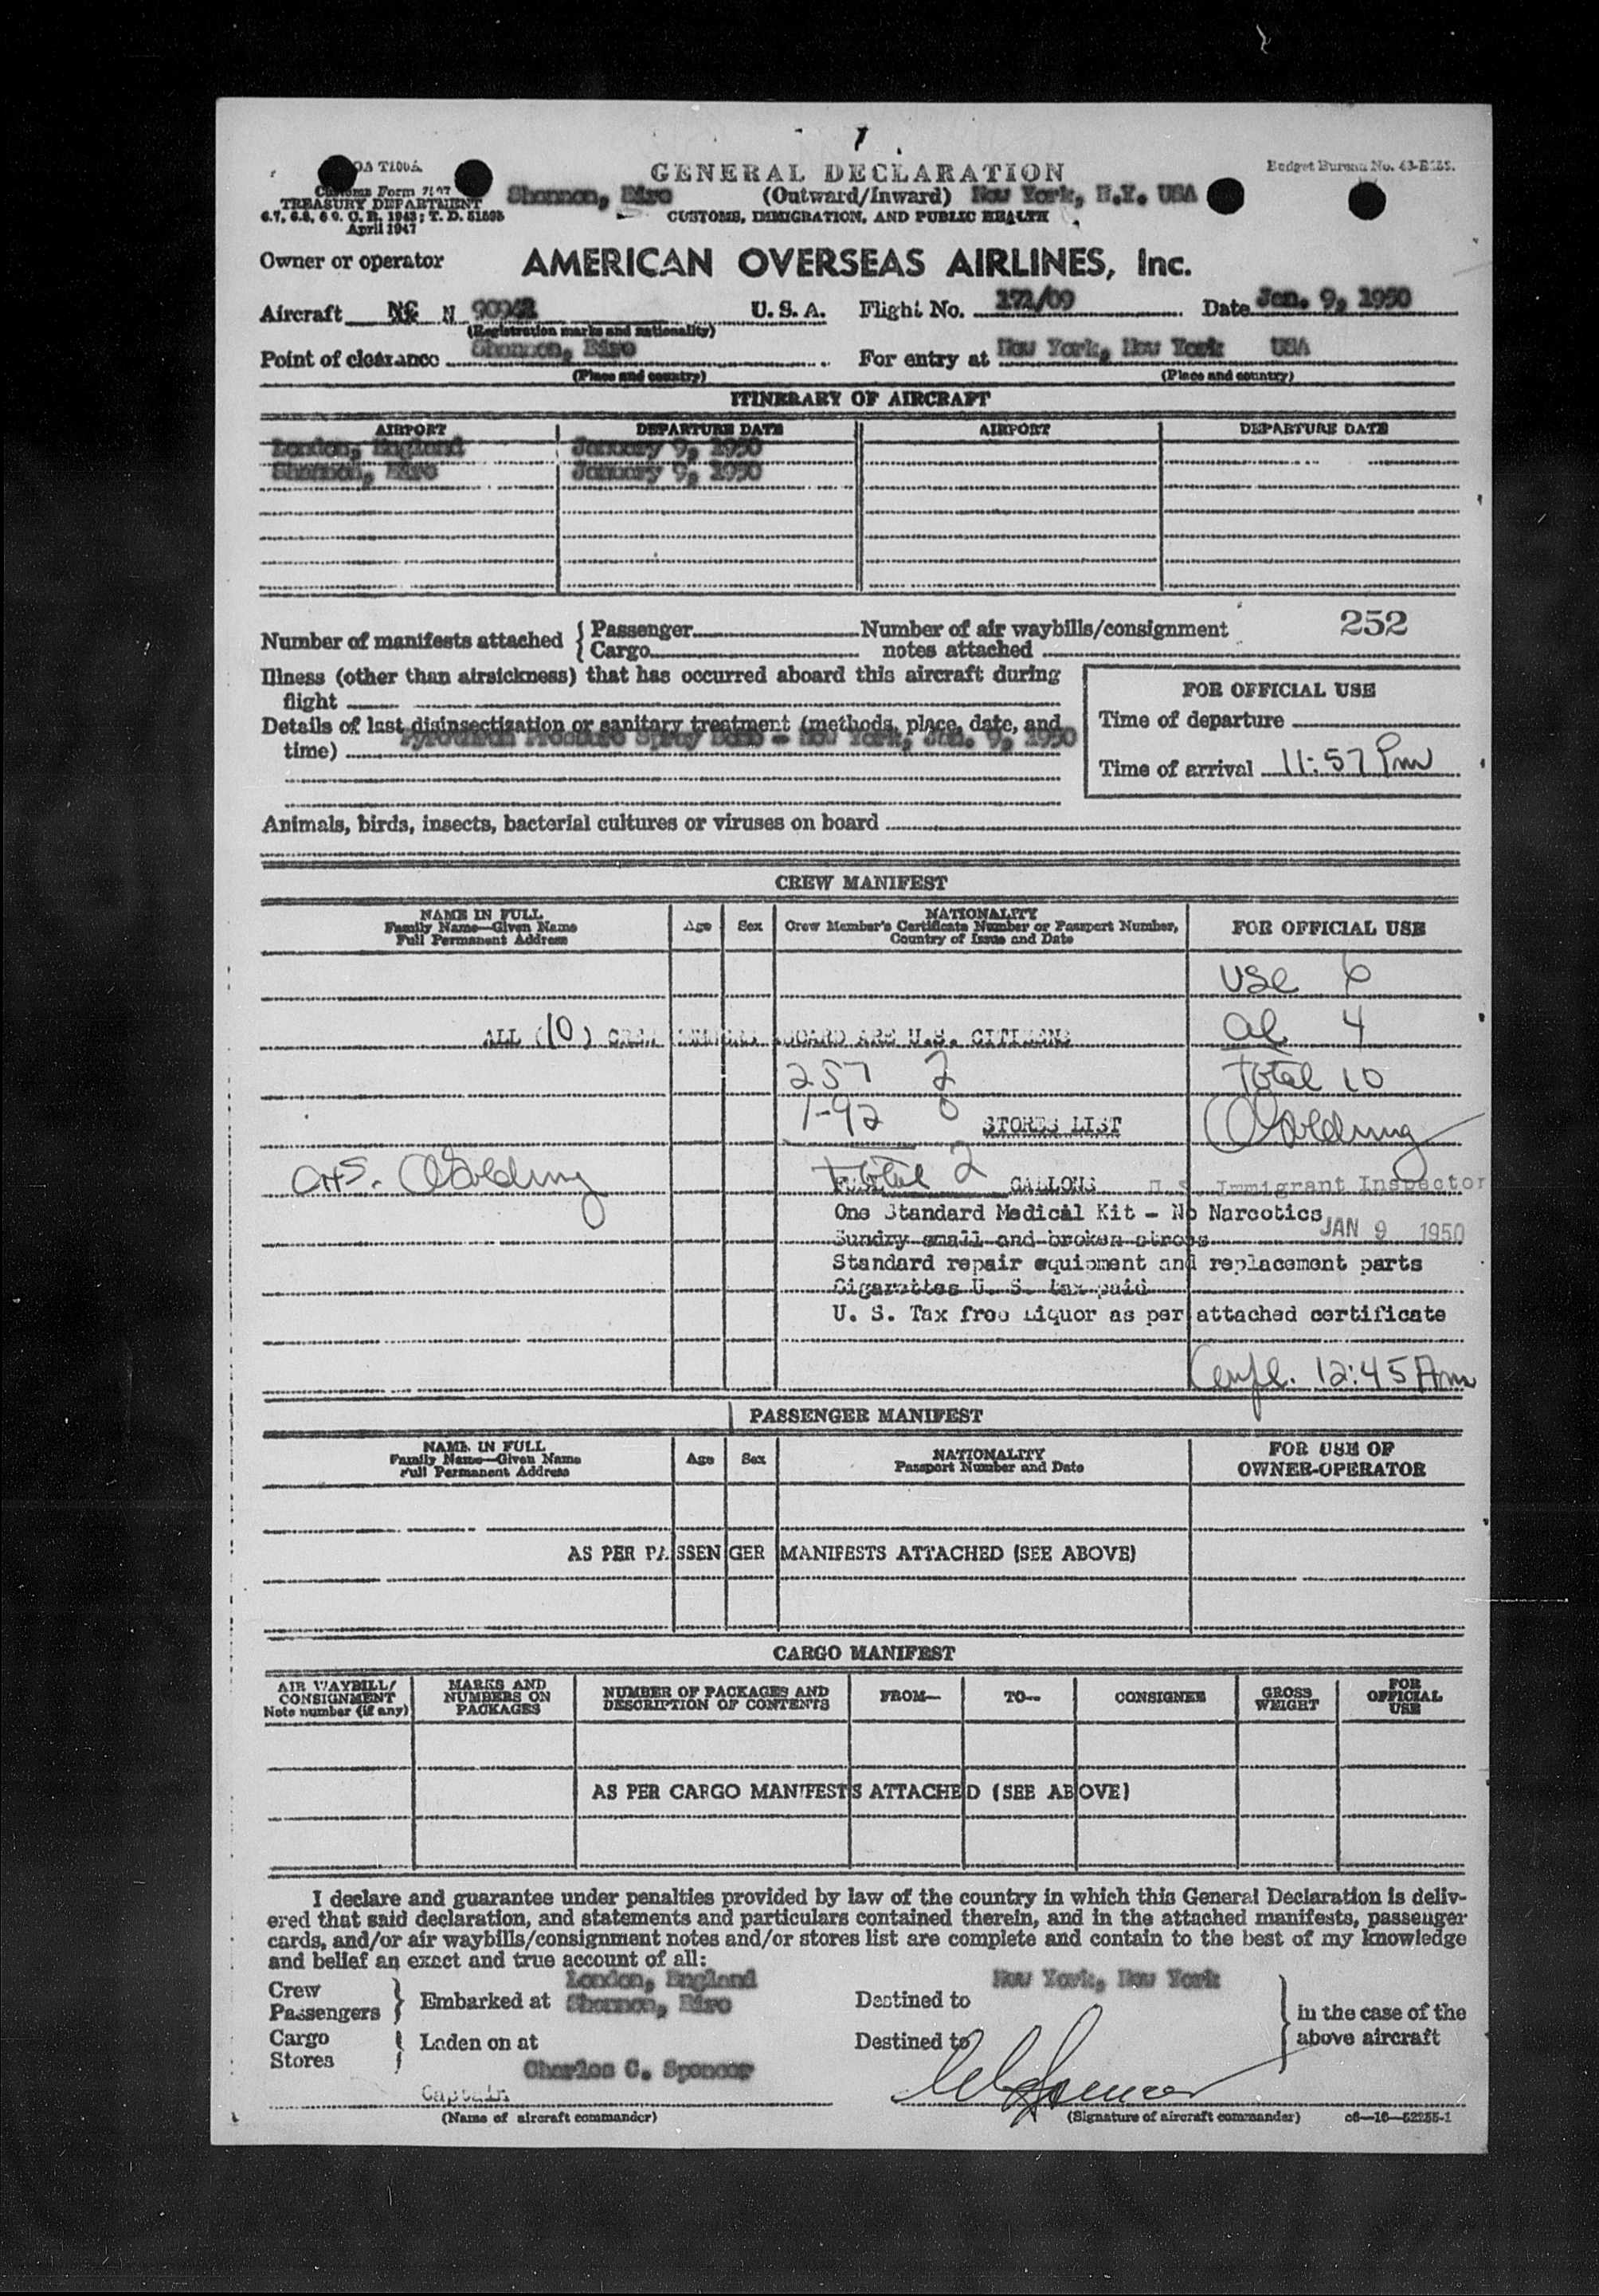 GENERAL DECLARATION
Budget Bureau No.
Customs Form 7507
TREASURY DEPARTMENT
April 1947
Shannon, Eire (Outward/Inward) New York, N.Y. USA
CUSTOMS, IMMIGRATION, AND PUBLIC HEALTH
Owner or operator AMERICAN OVERSEAS AIRLINES, Inc.
Aircraft NC N U. S. A. Flight No. 171/09 Date Jan. 9, 1950
(Registration marks and nationality)
Point of clearance Shannon, Eire For entry at New York, New York USA
(Place and country) (Place and country)
ITINERARY OF AIRCRAFT
AIRPORT DEPARTURE DATE AIRPORT DEPARTURE DATE
London, England January 9, 1950
Shannon, Eire January 9, 1950
252
Number of manifests attached { Passenger Number of air waybills/consignment
Cargo notes attached
Illness (other than airsickness) that has occurred aboard this aircraft during
flight
Details of last disinsectization or sanitary treatment (methods, place, date, and
time) Pyrethrum Pressure Spray Bomb - New York, Jan. 9, 1950
FOR OFFICIAL USE
Time of departure
Time of arrival 11:57 Pm
Animals, birds, insects, bacterial cultures or viruses on board
CREW MANIFEST
NAME IN FULL
Family Name—Given Name
Full Permanent Address
Age
Sex
NATIONALITY
Crew Member's Certificate Number or Passport Number,
Country of Issue and Date
FOR OFFICIAL USE
USC 6
ALL (10) CREW MEMBERS ABOARD ARE U.S. CITIZENS
al 4
257 2
Total 10
1-92 0
STORES LIST
Golding
Golding
Total 2
FUEL GALLONS
U. S. Immigrant Inspector
One Standard Medical Kit - No Narcotics
JAN 9 1950
Sundry small and broken stroes
Standard repair equipment and replacement parts
Cigarettes U. S. tax paid
U. S. Tax free Liquor as per attached certificate
12:45 Am
PASSENGER MANIFEST
NAME IN FULL
Family Name—Given Name
Full Permanent Address
Age
Sex
NATIONALITY
Passport Number and Date
FOR USE OF
OWNER-OPERATOR
AS PER PASSENGER MANIFESTS ATTACHED (SEE ABOVE)
CARGO MANIFEST
AIR WAYBILL/
CONSIGNMENT
Note number (if any)
MARKS AND
NUMBERS ON
PACKAGES
NUMBER OF PACKAGES AND
DESCRIPTION OF CONTENTS
FROM—
TO—
CONSIGNEE
GROSS
WEIGHT
FOR
OFFICIAL
USE
AS PER CARGO MANIFESTS ATTACHED (SEE ABOVE)
I declare and guarantee under penalties provided by law of the country in which this General Declaration is deliv-
ered that said declaration, and statements and particulars contained therein, and in the attached manifests, passenger
cards, and/or air waybills/consignment notes and/or stores list are complete and contain to the best of my knowledge
and belief an exact and true account of all:
London, England New York, New York
Crew
Passengers } Embarked at Shannon, Eire Destined to
in the case of the
above aircraft
Cargo
Stores } Laden on at Destined to
Charles C. Spencer
Captain
(Name of aircraft commander) (Signature of aircraft commander) c6—16—52255-1